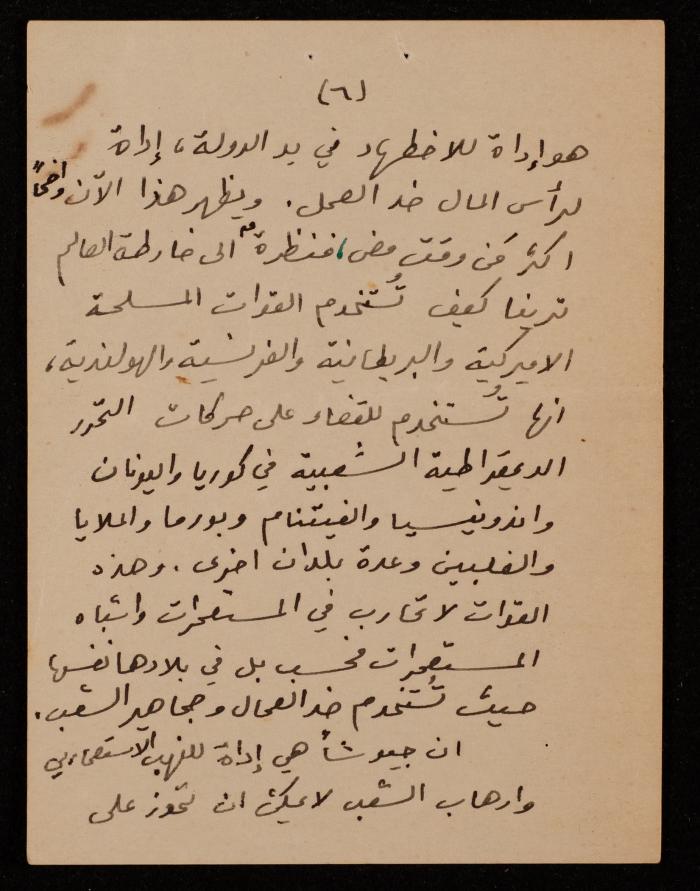 (٦)
هو إداة للاضطهاد في يد الدولة، إداة
لرأس المال ضد العمل. ويظهر هذا الآن واضحاً
اكثر من وقت مضى، فنظرة الى خارطة العالم
ترينا كيف تُستخدم القوات المسلحة
الاميركية والبريطانية والفرنسية والهولندية،
انها تُستخدم للقضاء على حركات التحرر
الديمقراطية الشعبية في كوريا واليونان
واندونيسيا والفيتنام وبورما والملايا
والفلبين وعدة بلدان اخرى. وهذه
القوات لا تحارب في المستعمرات واشباه
المستعمرات فحسب بل في بلادها نفسها
حيث تُستخدم ضد العمال وجماهير الشعب.
ان جيوشاً هي إداة للنهب الاستعماري
وارهاب الشعب لا يمكن ان تحوز على